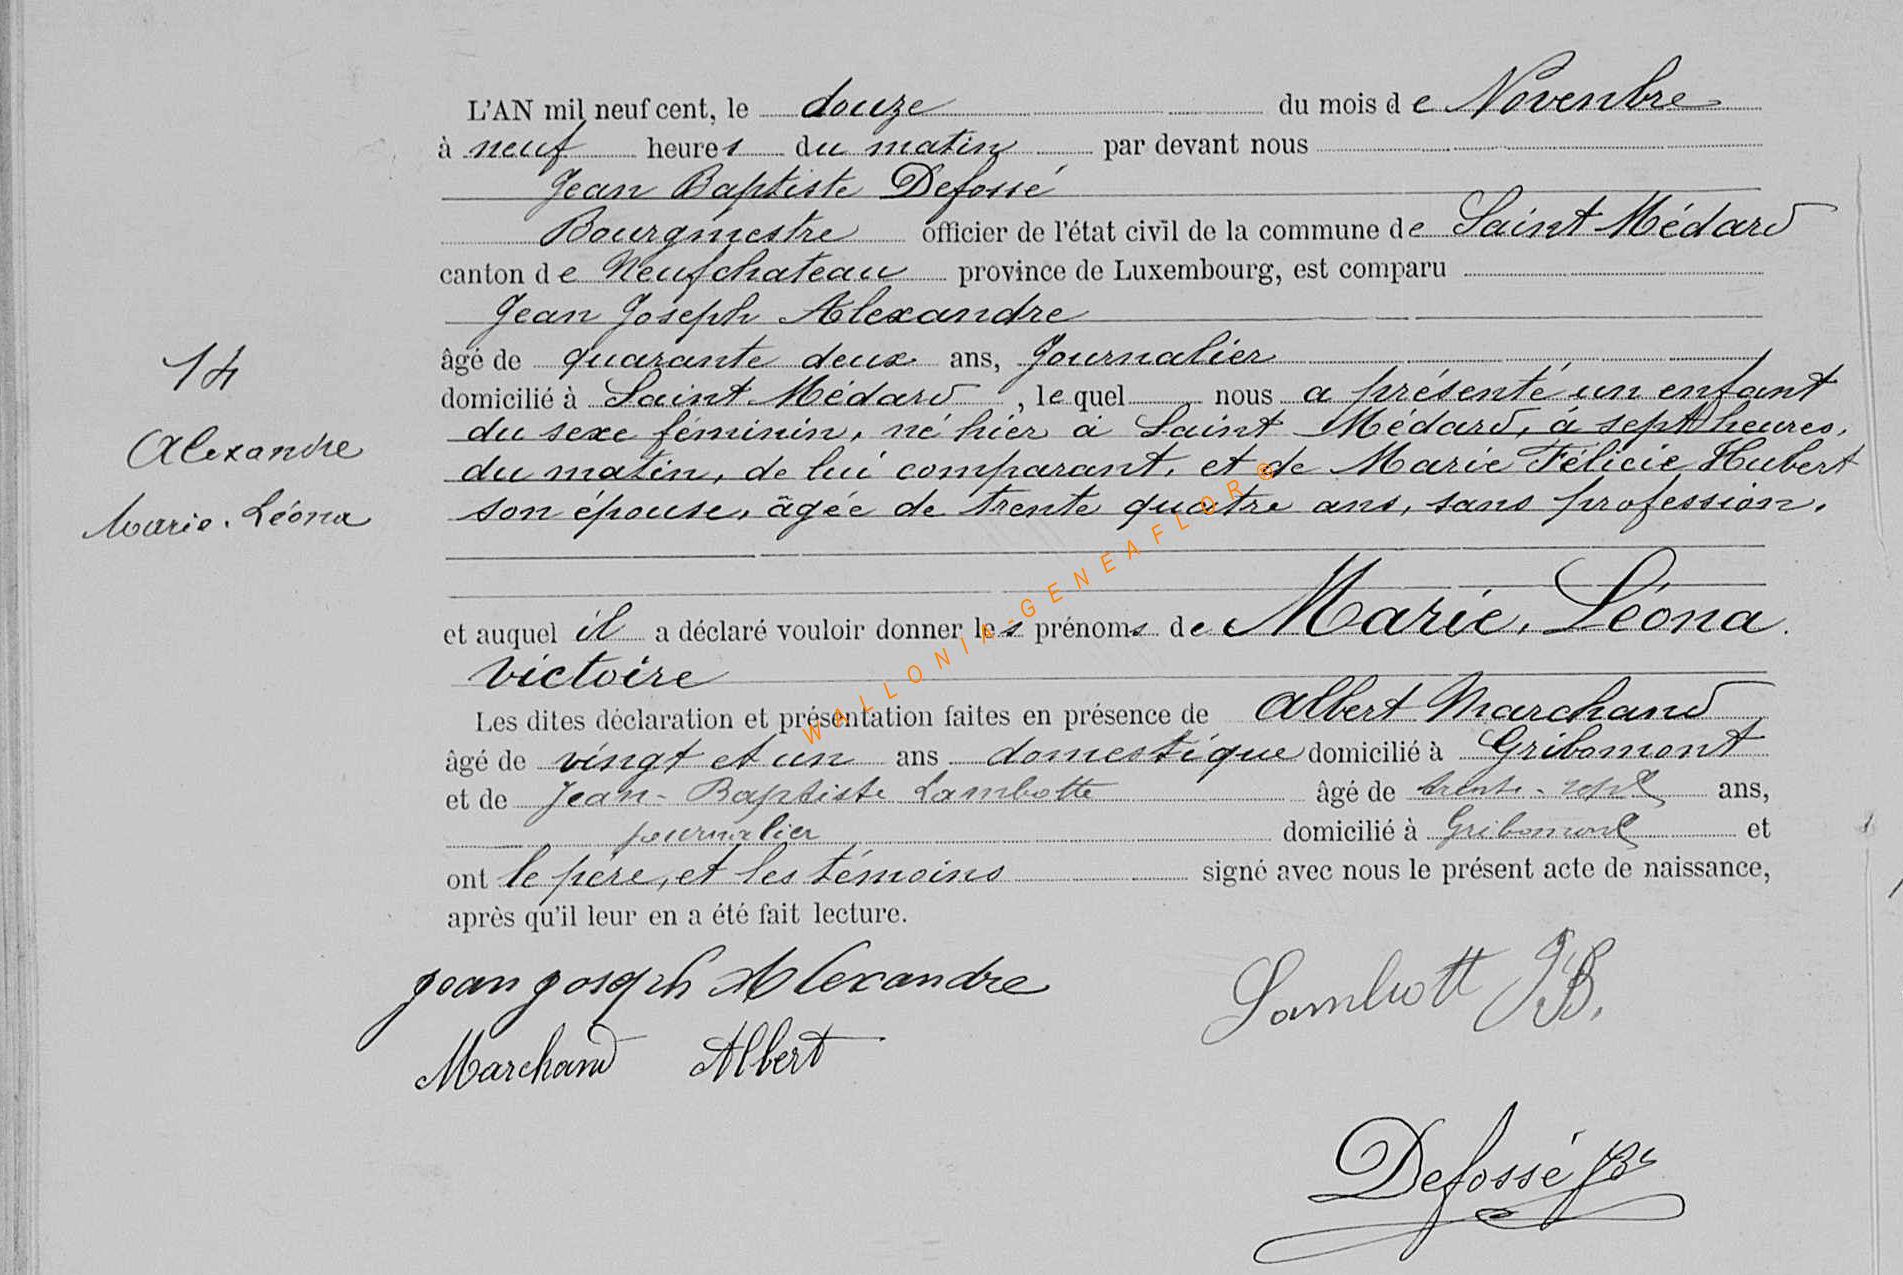 L'AN mil neuf cent, le douze du mois de Novenbre
à neuf heures du matin par devant nous
Jean Baptiste Defossé
Bourgmestre officier de l'état civil de la commune de Saint Médard
canton de Neufchateau province de Luxembourg, est comparu
Jean Joseph Alexandre
âgé de quarante deux ans, Journalier
domicilié à Saint Médard, lequel nous a présenté un enfant
du sexe féminin, né hier à Saint Médard, à sept heures,
du matin, de lui comparant, et de Marie Félicie Hubert
son épouse, âgée de trente quatre ans, sans profession.
14
Alexandre
Marie. Léona
et auquel il a déclaré vouloir donner les prénoms de Marie, Léona.
Victoire
Les dites déclaration et présentation faites en présence de Albert Marchand
âgé de vingt et un ans domestique domicilié à Gribomont
et de Jean-Baptiste Lambotte âgé de trente-sept ans,
journalier domicilié à Gribomont et
ont le père, et les témoins signé avec nous le présent acte de naissance,
après qu'il leur en a été fait lecture.
Jean Joseph Alexandre
Lambott J.B.
Marchand Albert
Defossé JB
WALLONIA-GENEAFLOR ©